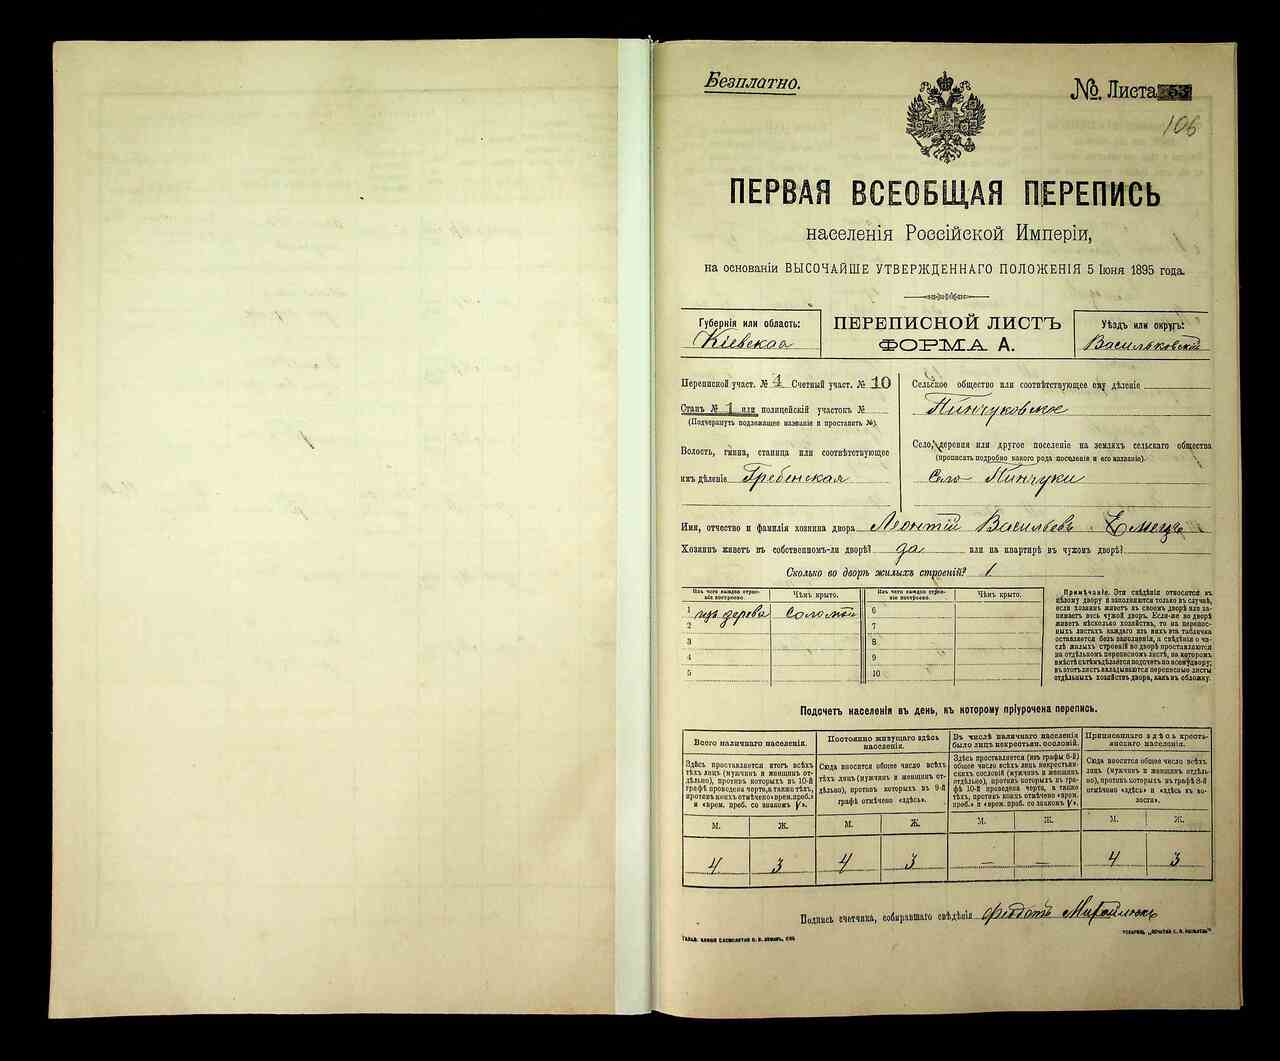 Безплатно.
№. Листа 53
106
ПЕРВАЯ ВСЕОБЩАЯ ПЕРЕПИСЬ
населенія Россійской Имперіи,
на основаніи ВЫСОЧАЙШЕ УТВЕРЖДЕННАГО ПОЛОЖЕНІЯ 5 Іюня 1895 года.
Губернія или область:
Кіевская
ПЕРЕПИСНОЙ ЛИСТЪ
ФОРМА А.
Уѣздъ или округъ:
Васильковскій
Переписной участ. № 1 Счетный участ. № 10
Станъ № 1 или полицейскій участокъ №
(Подчеркнуть подлежащее названіе и проставить №).
Волость, гмина, станица или соотвѣтствующее
имъ дѣленіе Гребенская
Сельское общество или соотвѣтствующее ему дѣленіе
Пинчуковское
Село, деревня или другое поселеніе на земляхъ сельскаго общества
(прописать подробно какого рода поселеніе и его названіе).
Село Пинчуки
Имя, отчество и фамилія хозяина двора Леонтій Васильевъ Емецъ
Хозяинъ живетъ въ собственномъ-ли дворѣ? да или на квартирѣ въ чужомъ дворѣ?
Сколько во дворѣ жилыхъ строеній? 1
Изъ чего каждое строеніе построено. Чѣмъ крыто. Изъ чего каждое строеніе построено. Чѣмъ крыто.
1 изъ дерева соломой 6
2 7
3 8
4 9
5 10
Примѣчаніе. Эти свѣдѣнія относятся къ
цѣлому двору и заполняются только въ случаѣ,
если хозяинъ живетъ въ своемъ дворѣ или занимаетъ
весь чужой дворъ. Если-же во дворѣ
живетъ нѣсколько хозяйствъ, то на переписныхъ
листахъ каждаго изъ нихъ эта табличка
оставляется безъ заполненія, а свѣдѣнія о числѣ
жилыхъ строеній во дворѣ проставляются
на отдѣльномъ переписномъ листѣ, на которомъ
вмѣстѣ съ тѣмъ дѣлается подсчетъ по всему двору;
въ этотъ листъ вкладываются переписные листы
отдѣльныхъ хозяйствъ двора, какъ въ обложку.
Подсчетъ населенія въ день, къ которому пріурочена перепись.
Всего наличнаго населенія.
Здѣсь проставляется итогъ всѣхъ
тѣхъ лицъ (мужчинъ и женщинъ отдѣльно),
противъ которыхъ въ 10-й
графѣ проведена черта, а также тѣхъ,
противъ коихъ отмѣчено «врем. преб.»
и «врем. преб. со знакомъ V».
Постоянно живущаго здѣсь
населенія.
Сюда вносится общее число всѣхъ
тѣхъ лицъ (мужчинъ и женщинъ отдѣльно),
противъ которыхъ въ 9-й
графѣ отмѣчено «здѣсь».
Въ числѣ наличнаго населенія
было лицъ некрестьян. сословій.
Здѣсь проставляется (изъ графы 8-й)
общее число всѣхъ лицъ некрестьянскихъ
сословій (мужчинъ и женщинъ
отдѣльно), противъ которыхъ въ графѣ
10-й проведена черта, а также
тѣхъ, противъ коихъ отмѣчено «врем.
преб.» и «врем. преб. со знакомъ V».
Приписаннаго здѣсь крестьянскаго
населенія.
Сюда вносится общее число всѣхъ
лицъ (мужчинъ и женщинъ отдѣльно),
противъ которыхъ въ графѣ 8-й
отмѣчено «здѣсь» и «здѣсь въ волости».
М. Ж. М. Ж. М. Ж. М. Ж.
4 3 4 3 — — 4 3
Подпись счетчика, собиравшаго свѣдѣнія Феодотъ Михайлюкъ